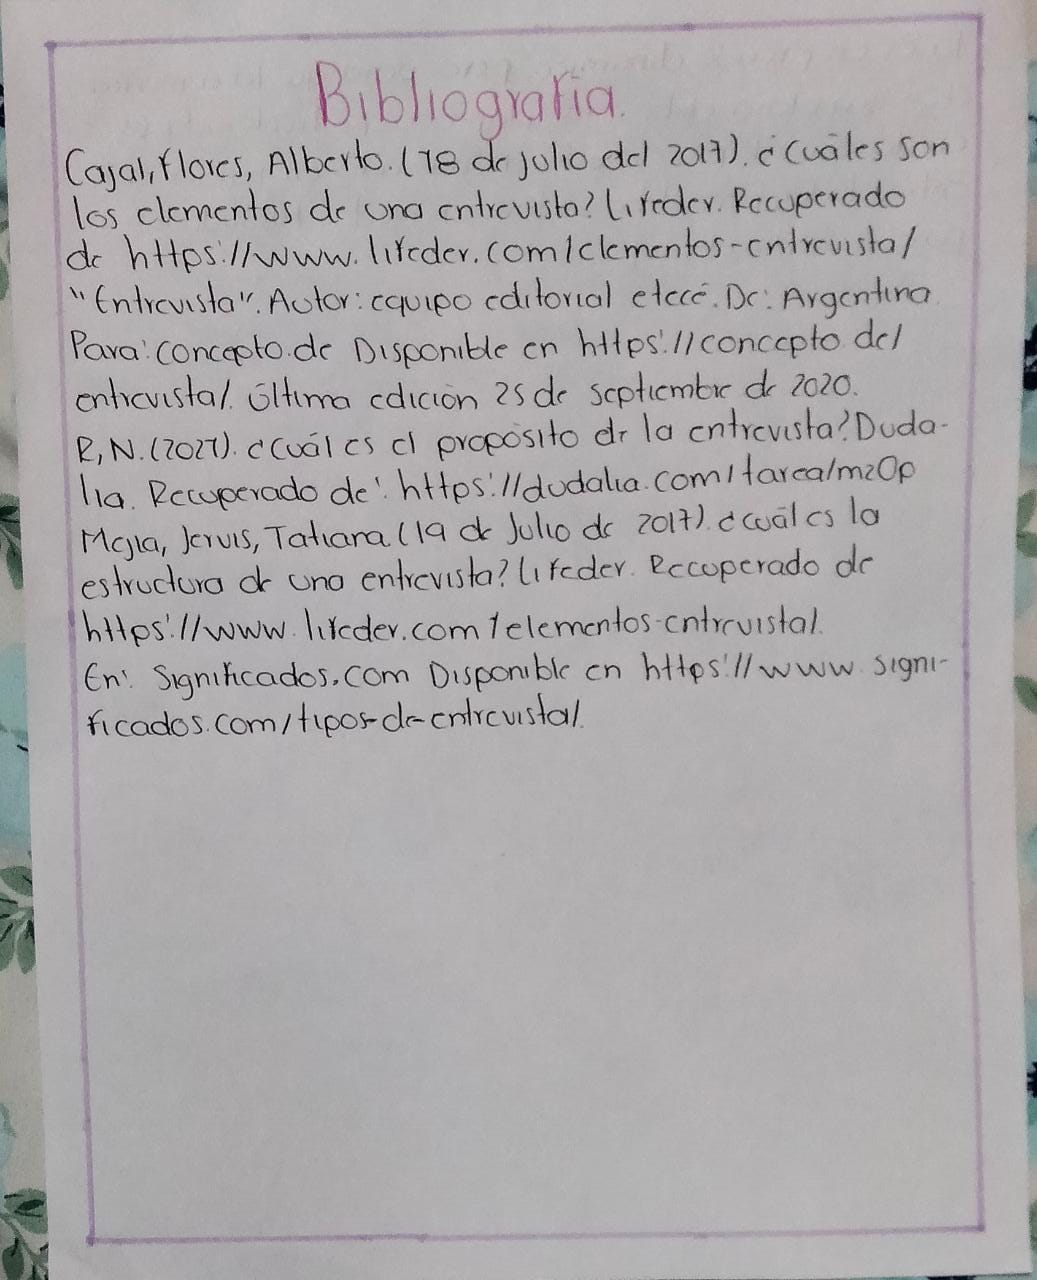 Bibliografía.
Cajal, Flores, Alberto. (18 de julio del 2017). ¿Cuáles son
los elementos de una entrevista? Lifeder. Recuperado
de https://www.lifeder.com/elementos-entrevista/
"Entrevista". Autor: equipo editorial etecé. De: Argentina
Para: concepto.de Disponible en https://concepto de/
entrevista/. Última edición 25 de septiembre de 2020.
R, N. (2021). ¿Cuál es el propósito de la entrevista? Duda-
lia. Recuperado de: https://dudalia.com/tarea/m20p
Mejia, Jervis, Tatiana (19 de Julio de 2017). ¿cuál es la
estructura de una entrevista? Lifeder. Recuperado de
https://www.lifeder.com/elementos-entrevista/.
En: Significados.com Disponible en https://www.signi-
ficados.com/tipos-de-entrevista/.